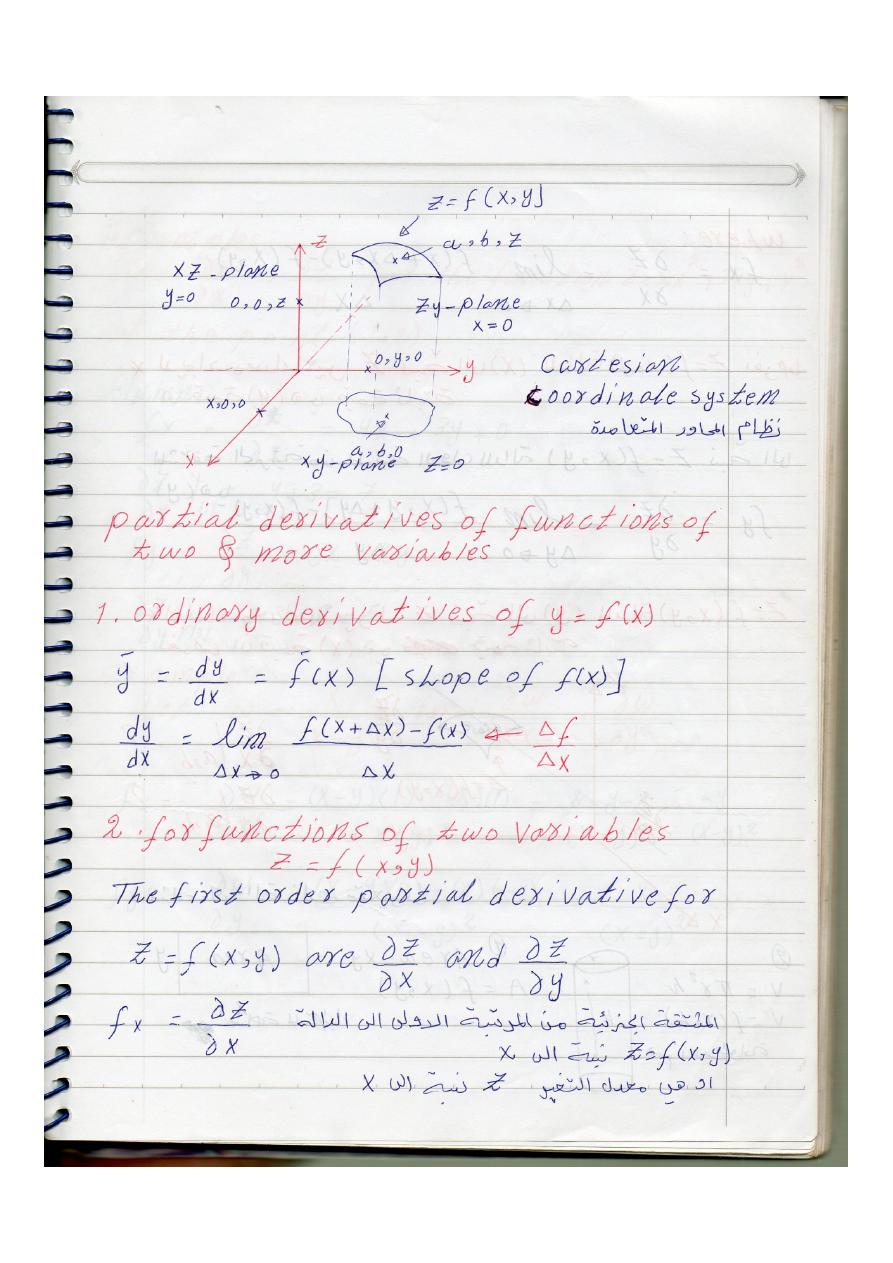 z = f(x,y)
z
a, b, z
xz-plane
y=0
0,0,z
zy-plane
x=0
0,y,0
y
Cartesian
Coordinale system
نظام المحاور المتعامدة
x,0,0
a,b,0
x
xy-plane z=0
partial derivatives of functions of
two & more variables
1. ordinary derivatives of y = f(x)
ȳ = dy/dx = f̄(x) [slope of f(x)]
dy/dx = lim Δx→0 (f(x+Δx)-f(x))/Δx ← Δf/Δx
2. for functions of two variables
z = f(x,y)
The first order partial derivative for
z = f(x,y) are ∂z/∂x and ∂z/∂y
fx = ∂z/∂x المشتقة الجزئية من المرتبة الاولى الى الدالة
z=f(x,y) نسبة الى x
او هي معدل التغير z نسبة الى x